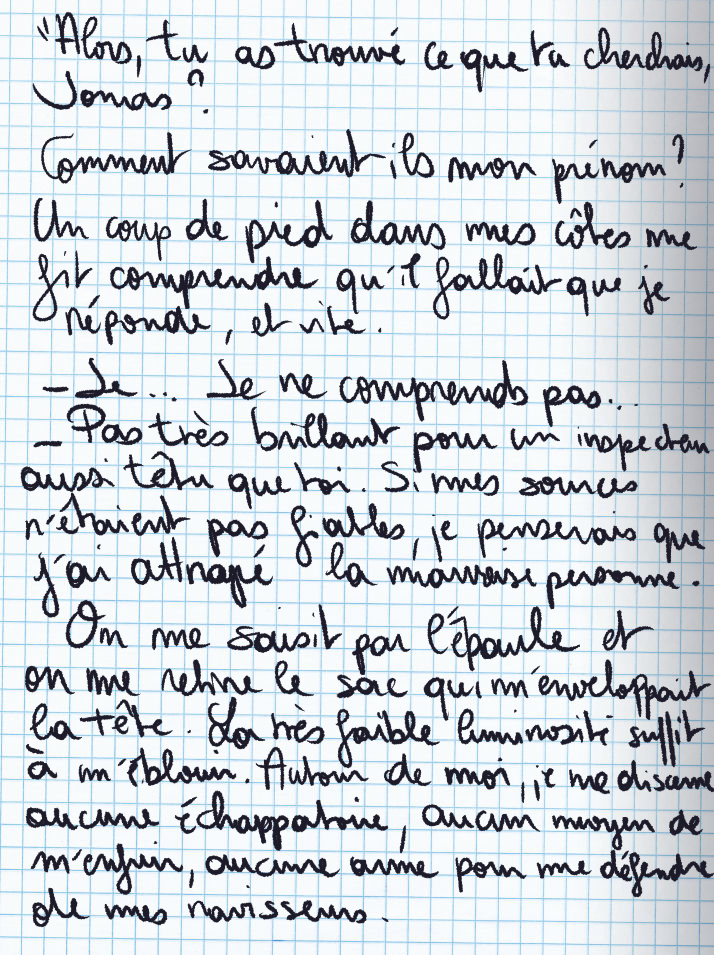 "Alors, tu as trouvé ce que tu cherchais,
Jonas ?
Comment savaient-ils mon prénom ?
Un coup de pied dans mes côtes me
fit comprendre qu'il fallait que je
réponde, et vite.
- Je... Je ne comprends pas...
- Pas très brillant pour un inspecteur
aussi têtu que toi. Si mes sources
n'étaient pas fiables, je penserais que
j'ai attrapé la mauvaise personne.
On me saisit par l'épaule et
on me retire le sac qui m'enveloppait
la tête. La très faible luminosité suffit
à m'éblouir. Autour de moi, je ne discerne
aucune échappatoire, aucun moyen de
m'enfuir, aucune arme pour me défendre
de mes ravisseurs.